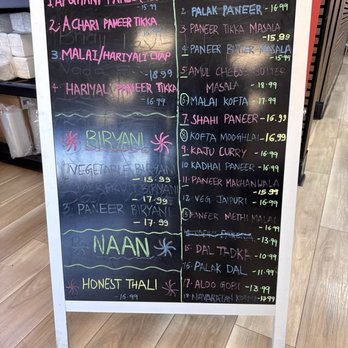 2 ACHARI PANEER TIKKA
- 16.99
3. MALAI/HARIYALI CHAP
- 18.99
4 HARIYALI PANEER TIKKA
- 16.99
BIRYANI
1. VEGETABLE BIRYANI
- 15.99
- 17.99
3. PANEER BIRYANI
- 17.99
NAAN
HONEST THALI
- 15.99
2 PALAK PANEER - 16.99
3 PANEER TIKKA MASALA
- 15.99
4 PANEER BUTTER MASALA
- 15.99
5 AMUL CHEESE BUTTER
MASALA - 18.99
6 MALAI KOFTA - 17.99
7 SHAHI PANEER - 16.99
8 KOFTA MOOGHLAI - 16.99
9 KAJU CURRY - 16.99
10 KADHAI PANEER - 16.99
11 PANEER MAKHANWALA
- 15.99
12 VEG JAIPURI - 16.99
PANEER METHI MALAI
- 13.99
15 DAL TADKA - 13.99
16 PALAK DAL - 11.99
17 ALOO GOBI - 13.99
18 NAVARATAN KORMA - 17.99